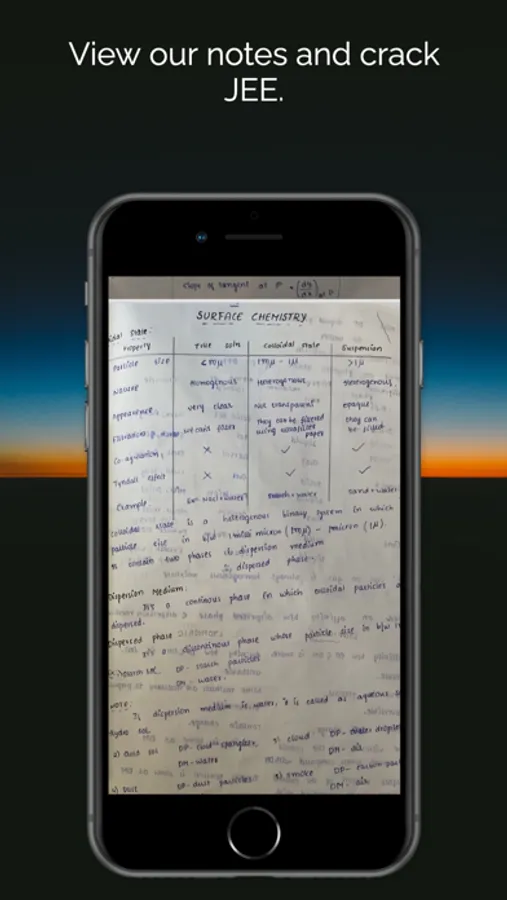 View our notes and crack
JEE.
slope of tangent at P = (dy/dx) at P
SURFACE CHEMISTRY
idal state:
Property True soln Colloidal state Suspension
Particle size < 1mμ 1mμ - 1μ > 1μ
Nature Homogenous Heterogenous Heterogenous
Appearance very clear Not transparent opaque
Filteration we can't filter They can be filtered using ultrafilter paper They can be filtered
Co-agulation, × ✓ ✓
Tyndall effect × ✓ ✓
Example Ex- starch + water sand + water
Colloidal state is a heterogenous binary system in which
particle size in b/w 1 milli micron (1mμ) - micron (1μ).
It contain two phases i) dispersion medium
ii) dispersed phase.
Dispersion Medium:
It's a continous phase in which colloidal particles a
dispersed.
Dispersed phase
It's a discontinous phase whose particle size in b/w 1
starch sol. DP - starch particles
DM - water.
NOTE:
If dispersion medium is water, it is called as aqueous
hydro sol.
a) Gold sol DP - 
DM - water
3) cloud DP - water droplet
DM - air
4) Dust DP - dust particles
5) smoke DP - carbon par
DM - air